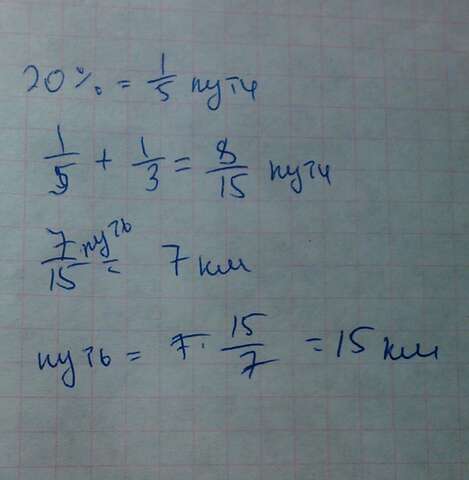 20% = 1/5 пути
1/5 + 1/3 = 8/15 пути
7/15 путь = 7 км
путь = 7 · 15/7 = 15 км